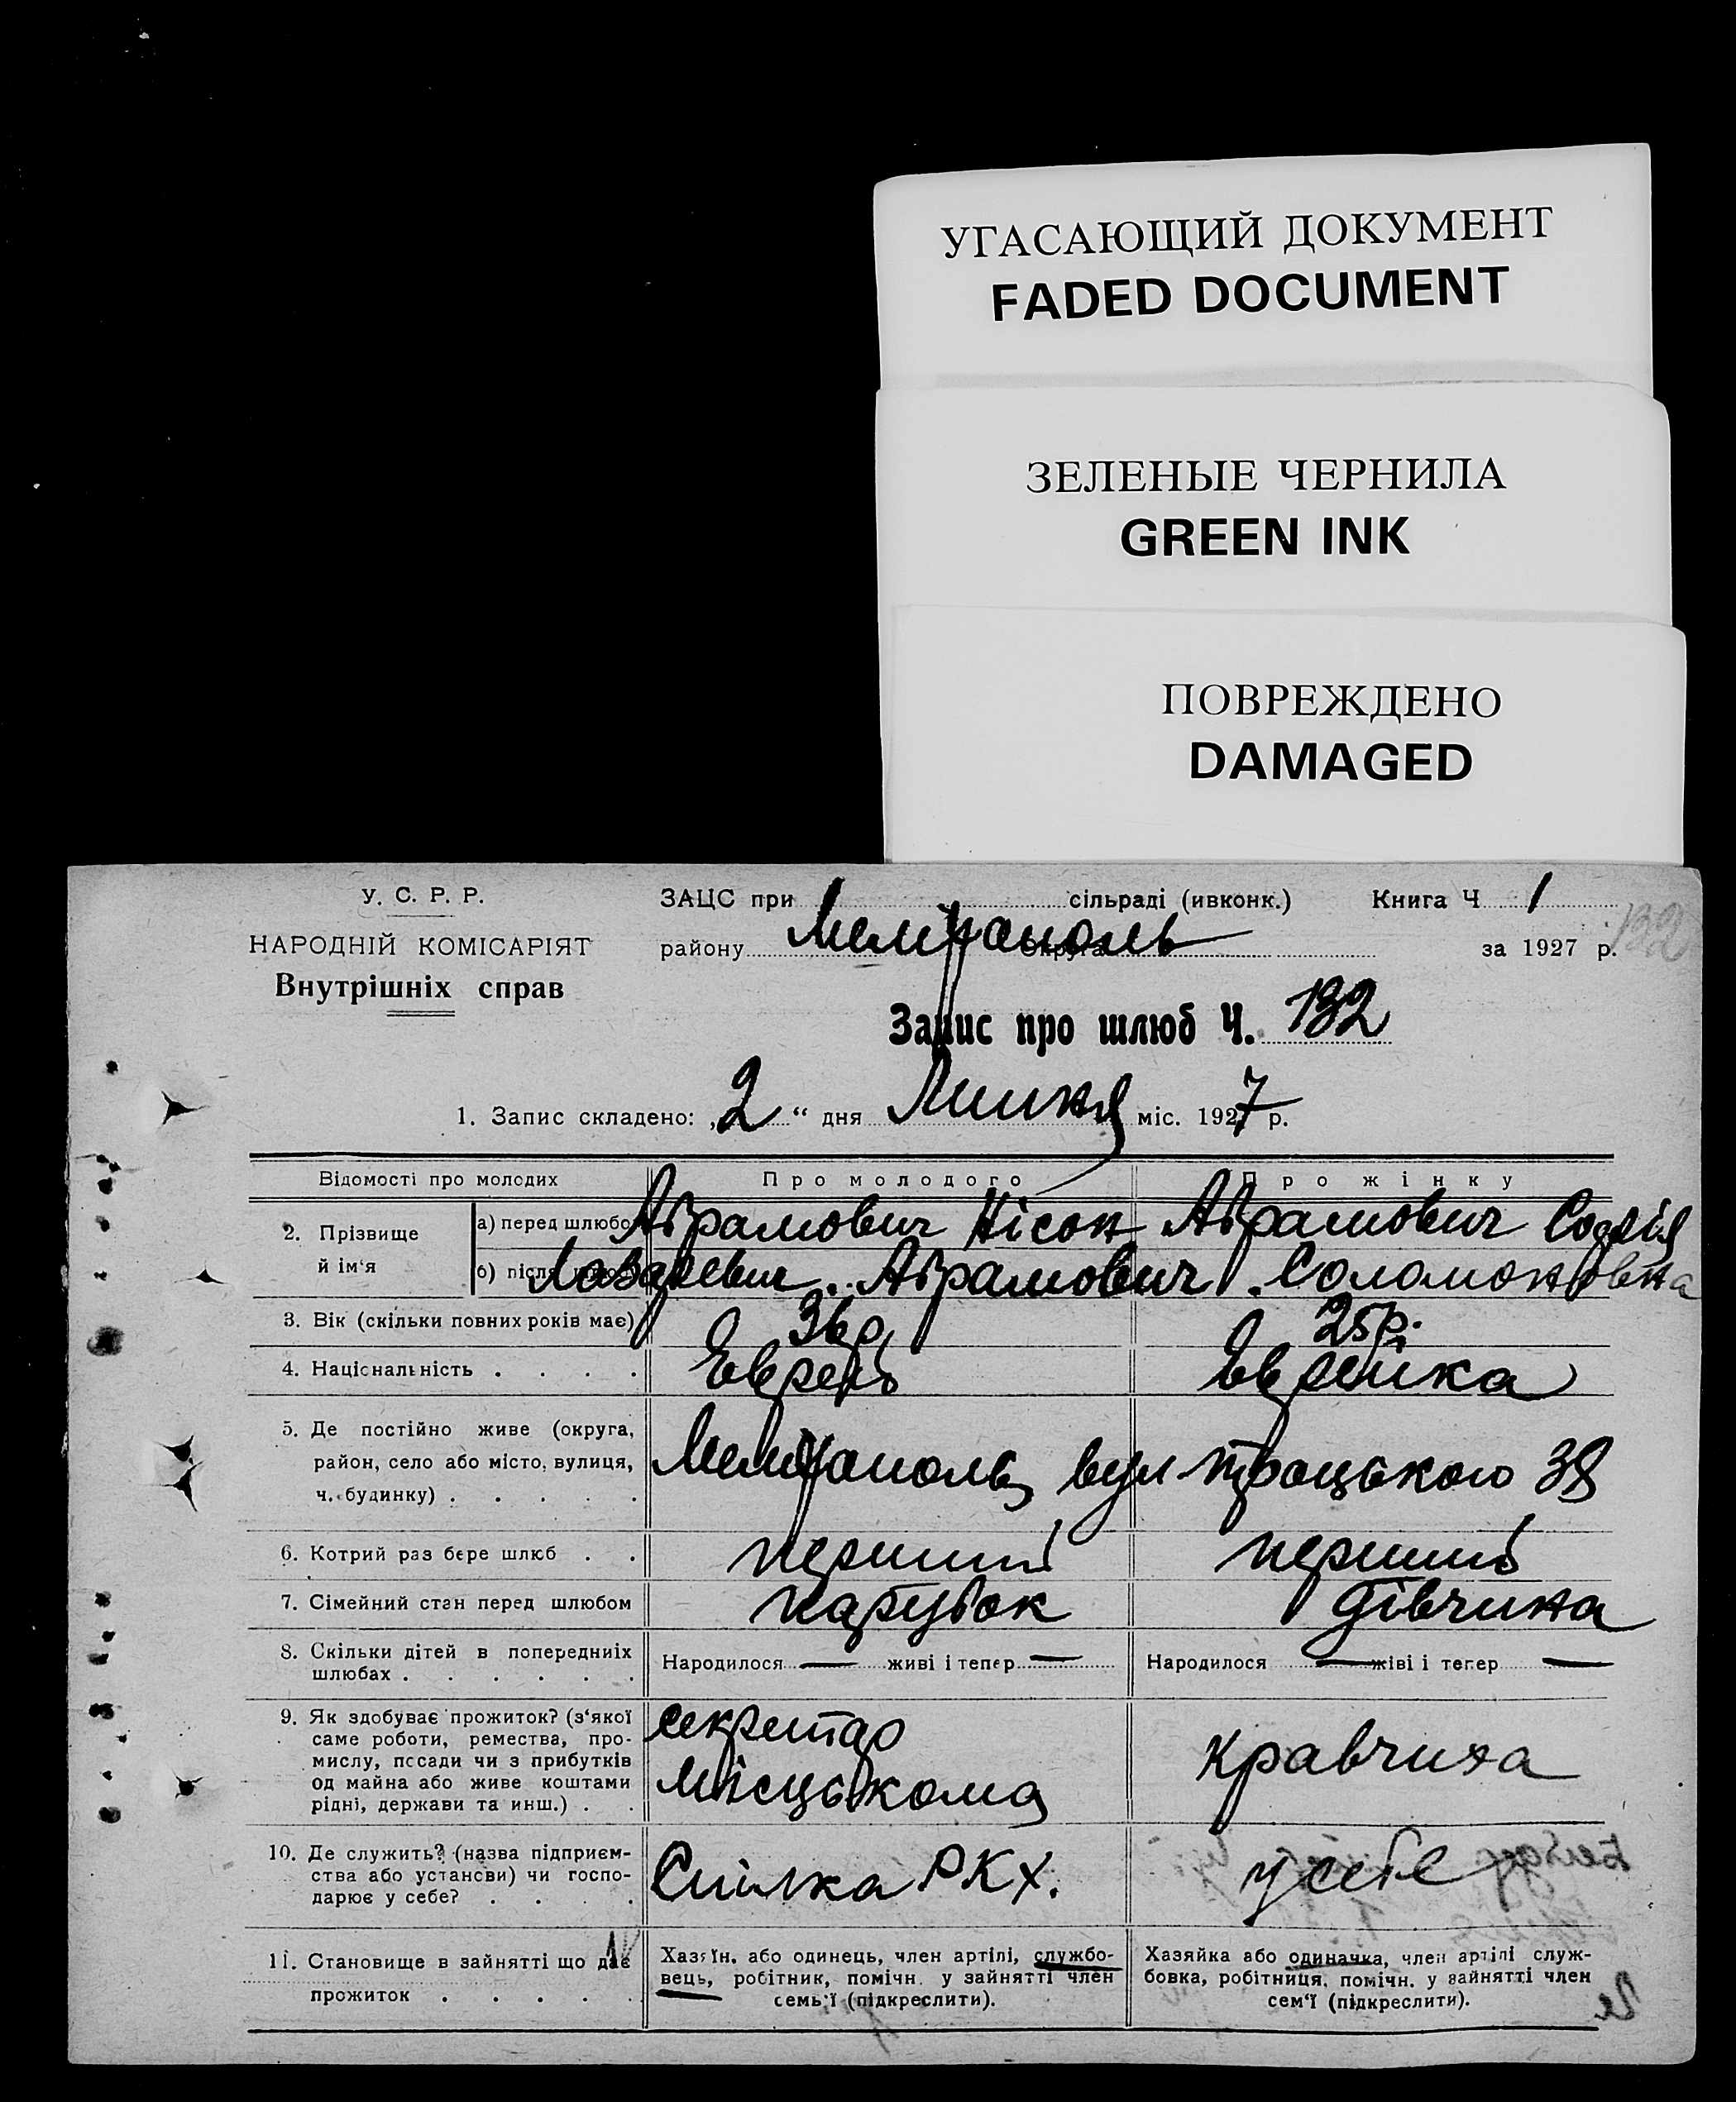 УГАСАЮЩИЙ ДОКУМЕНТ
FADED DOCUMENT
ЗЕЛЕНЫЕ ЧЕРНИЛА
GREEN INK
ПОВРЕЖДЕНО
DAMAGED
У. С. Р. Р.
НАРОДНІЙ КОМІСАРІЯТ
Внутрішніх справ
ЗАЦС при сільраді (ивконк.) Книга Ч 1
району Мелітополь Округа за 1927 р. 132
Запис про шлюб Ч. 132
1. Запис складено: „2“ дня Липня міс. 1927 р.
Відомості про молодих Про молодого Про жінку
2. Прізвище й ім'я
а) перед шлюбо Абрамович Нісон Абрамович Софія
б) після Лазаревич. Абрамович. Соломоновна
3. Вік (скільки повних років має) 36 р. 25 р.
4. Національність . . . . Еврей Еврейка
5. Де постійно живе (округа,
район, село або місто, вулиця,
ч. будинку) . . . . .
Мелітополь вул Троцького 38
6. Котрий раз бере шлюб . . перший перший
7. Сімейний стан перед шлюбом парубок дівчина
8. Скільки дітей в попередниіх
шлюбах . . . . . .
Народилося — живі і тепер — Народилося — жіві і тепер —
9. Як здобуває прожиток? (з'якої
саме роботи, ремества, про-
мислу, посади чи з прибутків
од майна або живе коштами
рідні, держави та инш.) . .
секретар
Місцькома
кравчиха
10. Де служить? (назва підприєм-
ства або установи) чи госпо-
дарює у себе? . . . .
Спілка РКХ. у себе
11. Становище в зайнятті що дає
прожиток . . . . .
Хазяїн, або одинець, член артілі, службо-
вець, робітник, помічн. у зайнятті член
семь'ї (підкреслити).
Хазяйка або одиначка, член артілі служ-
бовка, робітниця, помічн. у зайнятті член
сем'ї (підкреслити).